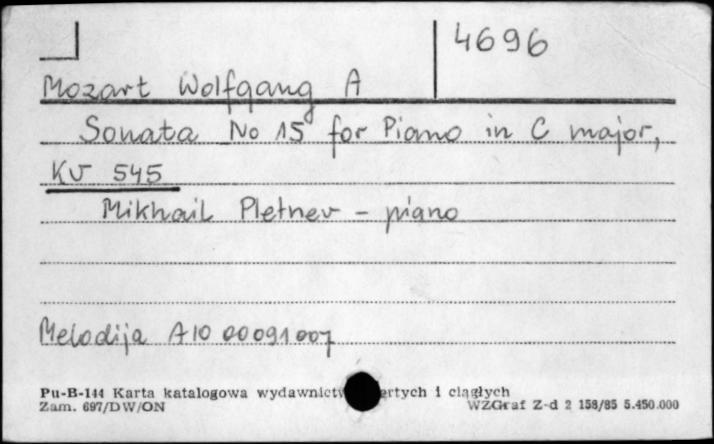 4696
Mozart Wolfgang A
Sonata No 15 for Piano in C major,
KV 545
Mikhail Pletnev - piano
Melodija A10 00091 007
Pu-B-144 Karta katalogowa ciągłych
Zam. 697/DW/ON WZGraf Z-d 2 158/85 5.450.000